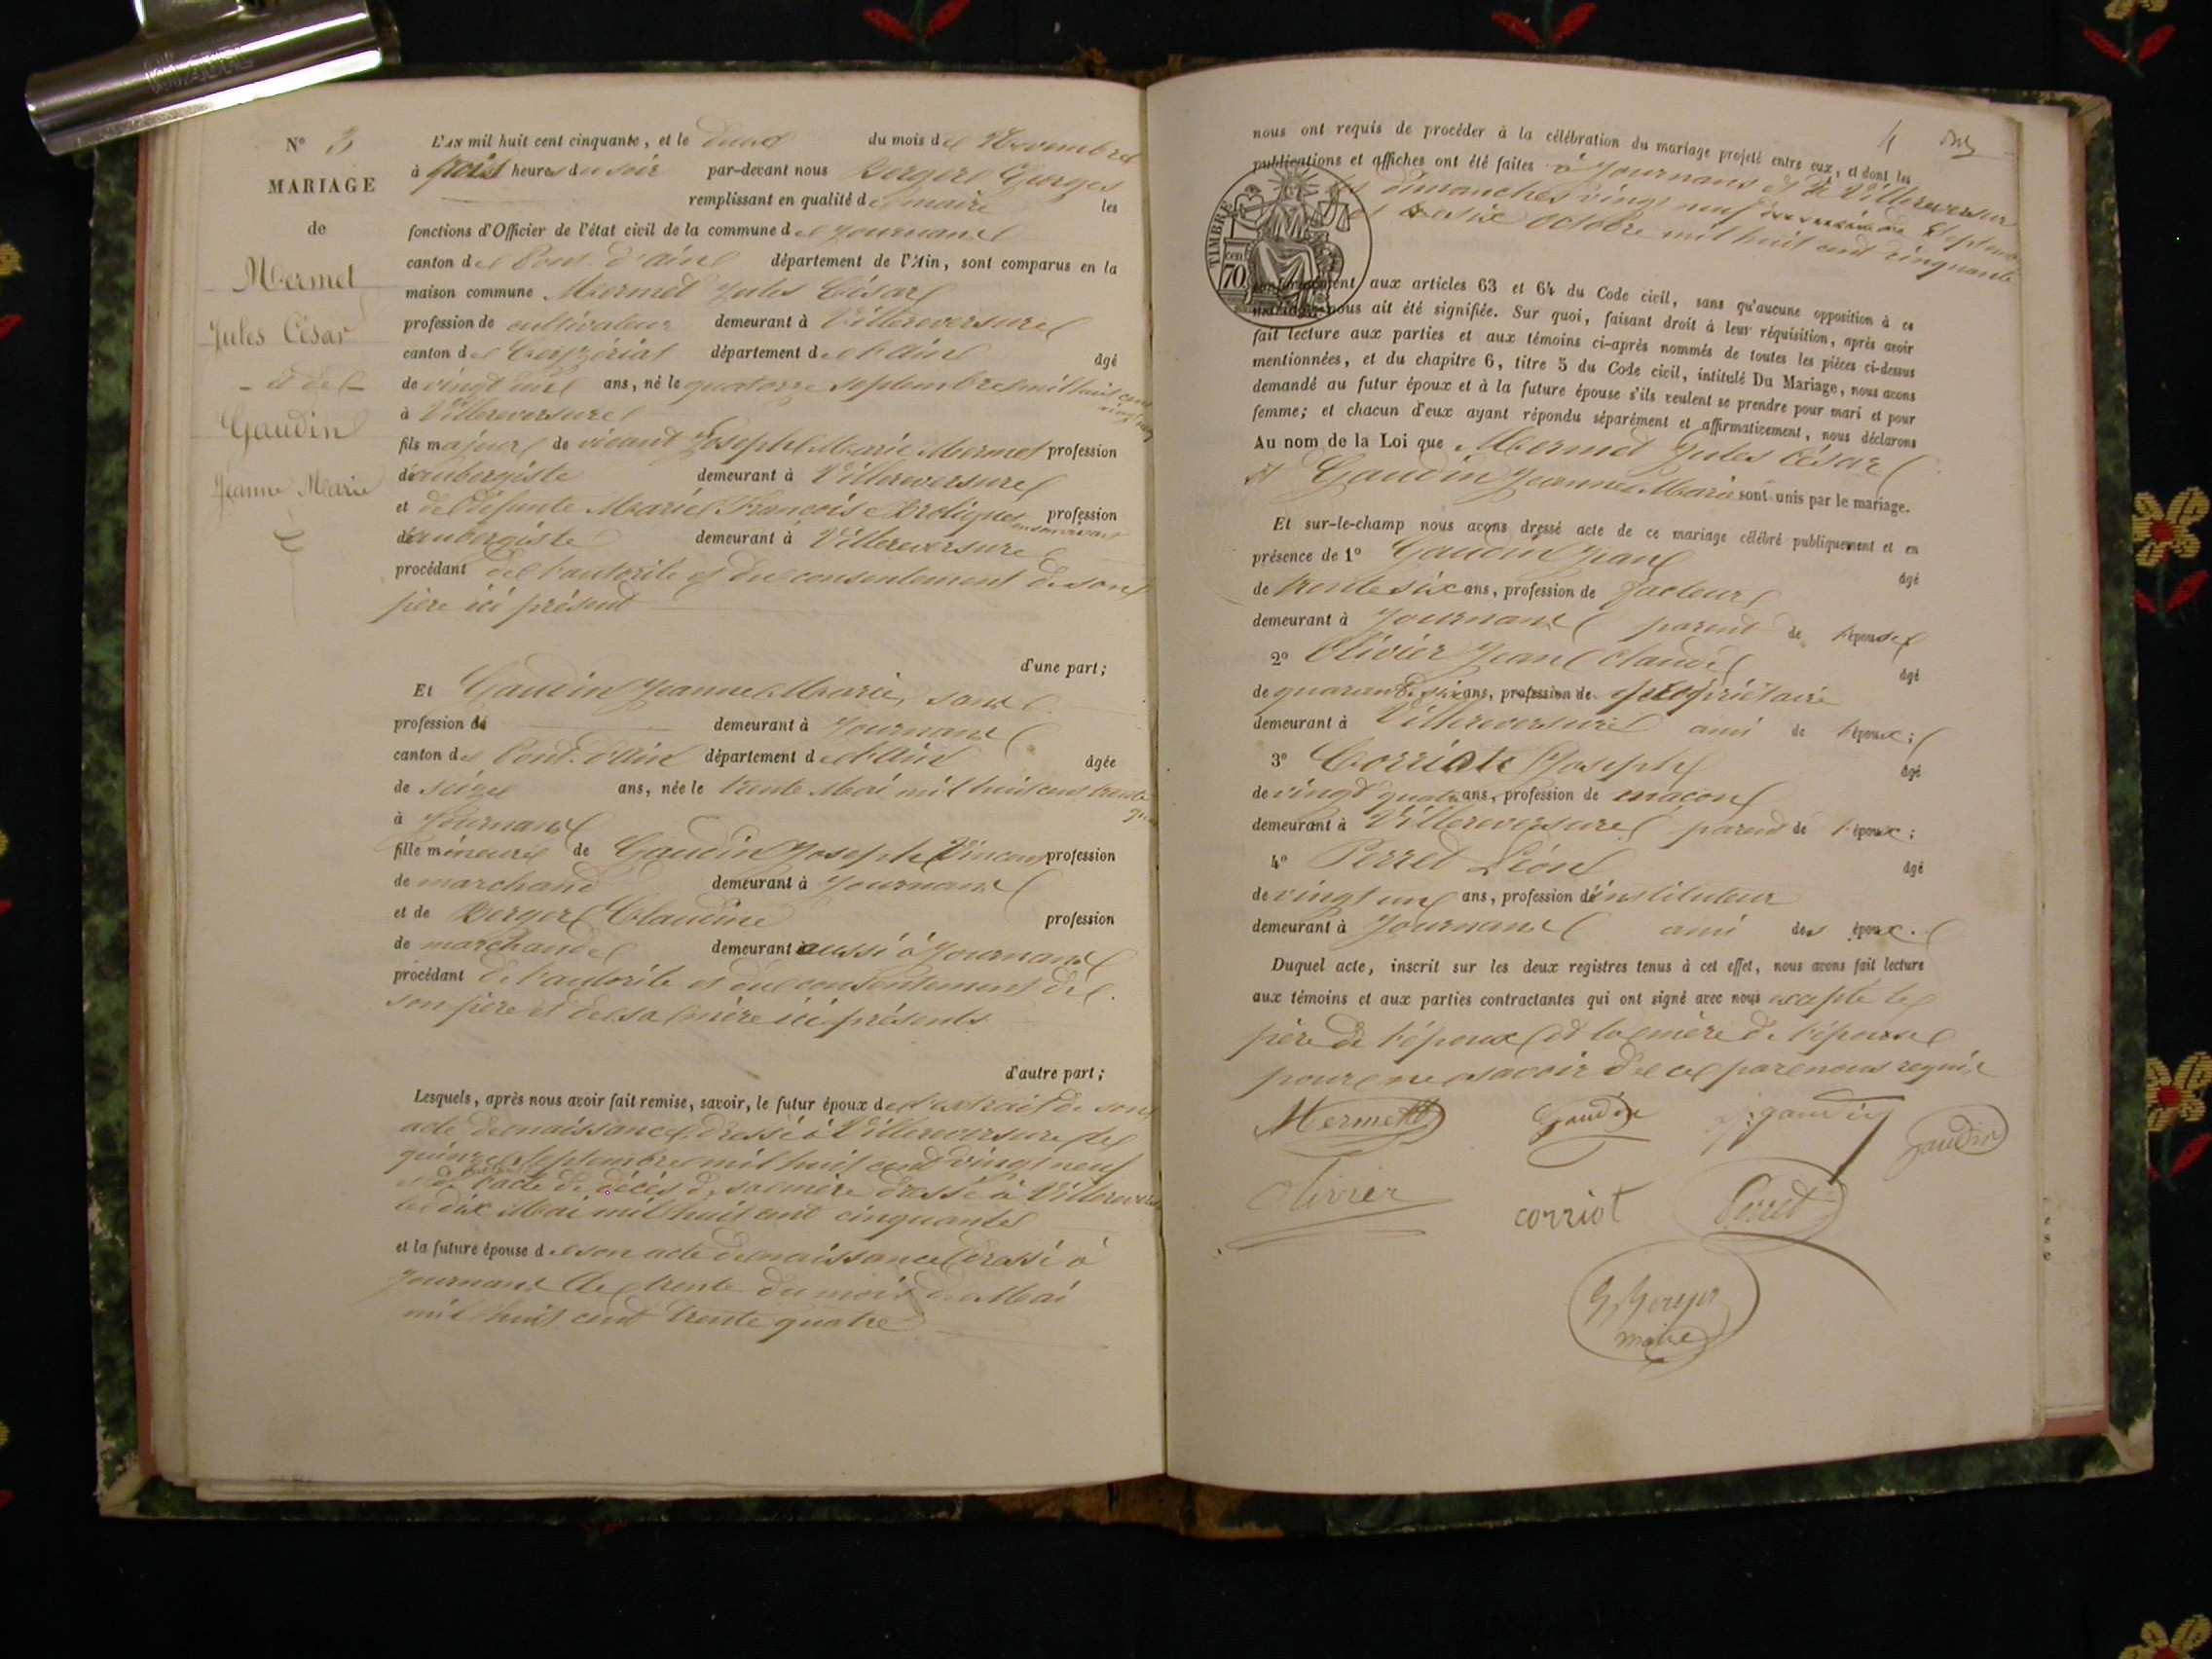 N° 3
MARIAGE
de
Mermet
Jules César
et de
Gaudin
Jeanne Marie
L'AN mil huit cent cinquante, et le deux du mois de Novembre
à trois heures du soir par-devant nous Berger Georges
remplissant en qualité de maire les
fonctions d'Officier de l'état civil de la commune de Journans
canton de Pont-d'ain département de l'Ain, sont comparus en la
maison commune Mermet Jules César
profession de cultivateur demeurant à Villereversure
canton de Ceyzériat département de l'Ain âgé
de vingt un ans, né le quatorze septembre mil huit cent
vingt neuf
à Villereversure
fils majeur de vivant Joseph Marie Mermet profession
d'aubergiste demeurant à Villereversure
et de défunte Marie François profession
d'aubergiste demeurant à Villereversure
procédant de l'autorité et du consentement de son
père ici présent
d'une part;
Et Gaudin Jeanne Marie, sans
profession de demeurant à Journans
canton de Pont-d'Ain département de l'Ain âgée
de seize ans, née le trente Mai mil huit cent trente
à Journans
fille mineure de Gaudin Joseph Vincent profession
de marchand demeurant à Journans
et de Berger Claudine profession
de marchande demeurant aussi à Journans
procédant de l'autorité et du consentement de
son père et de sa mère ici présents
d'autre part;
Lesquels, après nous avoir fait remise, savoir, le futur époux de l'extrait de son
acte de naissance dressé à Villereversure le
quinze septembre mil huit cent vingt neuf
et de l'acte de décès de sa mère dressé à Villereversure
le dix Mai mil huit cent cinquante
et la future épouse de son acte de naissance dressé à
Journans le trente du mois de Mai
mil huit cent trente quatre
4
nous ont requis de procéder à la célébration du mariage projeté entre eux, et dont les
publications et affiches ont été faites à Journans et à Villereversure
les dimanches vingt neuf septembre
et six octobre mil huit cent cinquante
TIMBRE
70 cen
conformément aux articles 63 et 64 du Code civil, sans qu'aucune opposition à ce
mariage nous ait été signifiée. Sur quoi, faisant droit à leur réquisition, après avoir
fait lecture aux parties et aux témoins ci-après nommés de toutes les pièces ci-dessus
mentionnées, et du chapitre 6, titre 5 du Code civil, intitulé Du Mariage, nous avons
demandé au futur époux et à la future épouse s'ils veulent se prendre pour mari et pour
femme; et chacun d'eux ayant répondu séparément et affirmativement, nous déclarons
Au nom de la Loi que Mermet Jules César
et Gaudin Jeanne Marie sont unis par le mariage.
Et sur-le-champ nous avons dressé acte de ce mariage célébré publiquement et en
présence de 1° Gaudin Jean âgé
de trente six ans, profession de facteur
demeurant à Journans parent de l'épouse
2° Olivier Jean Claude âgé
de quarante six ans, profession de propriétaire
demeurant à Villereversure ami de l'époux;
3° Corriot Joseph âgé
de vingt quatre ans, profession de maçon
demeurant à Villereversure parent de l'époux;
4° Perret Léon âgé
de vingt un ans, profession d'instituteur
demeurant à Journans ami des époux.
Duquel acte, inscrit sur les deux registres tenus à cet effet, nous avons fait lecture
aux témoins et aux parties contractantes qui ont signé avec nous excepté le
père de l'époux et la mère de l'épouse
pour ne savoir de ce par nous requis
Mermet Gaudin J. gaudin Gaudin
Olivier corriot Perret
G, Berger
maire